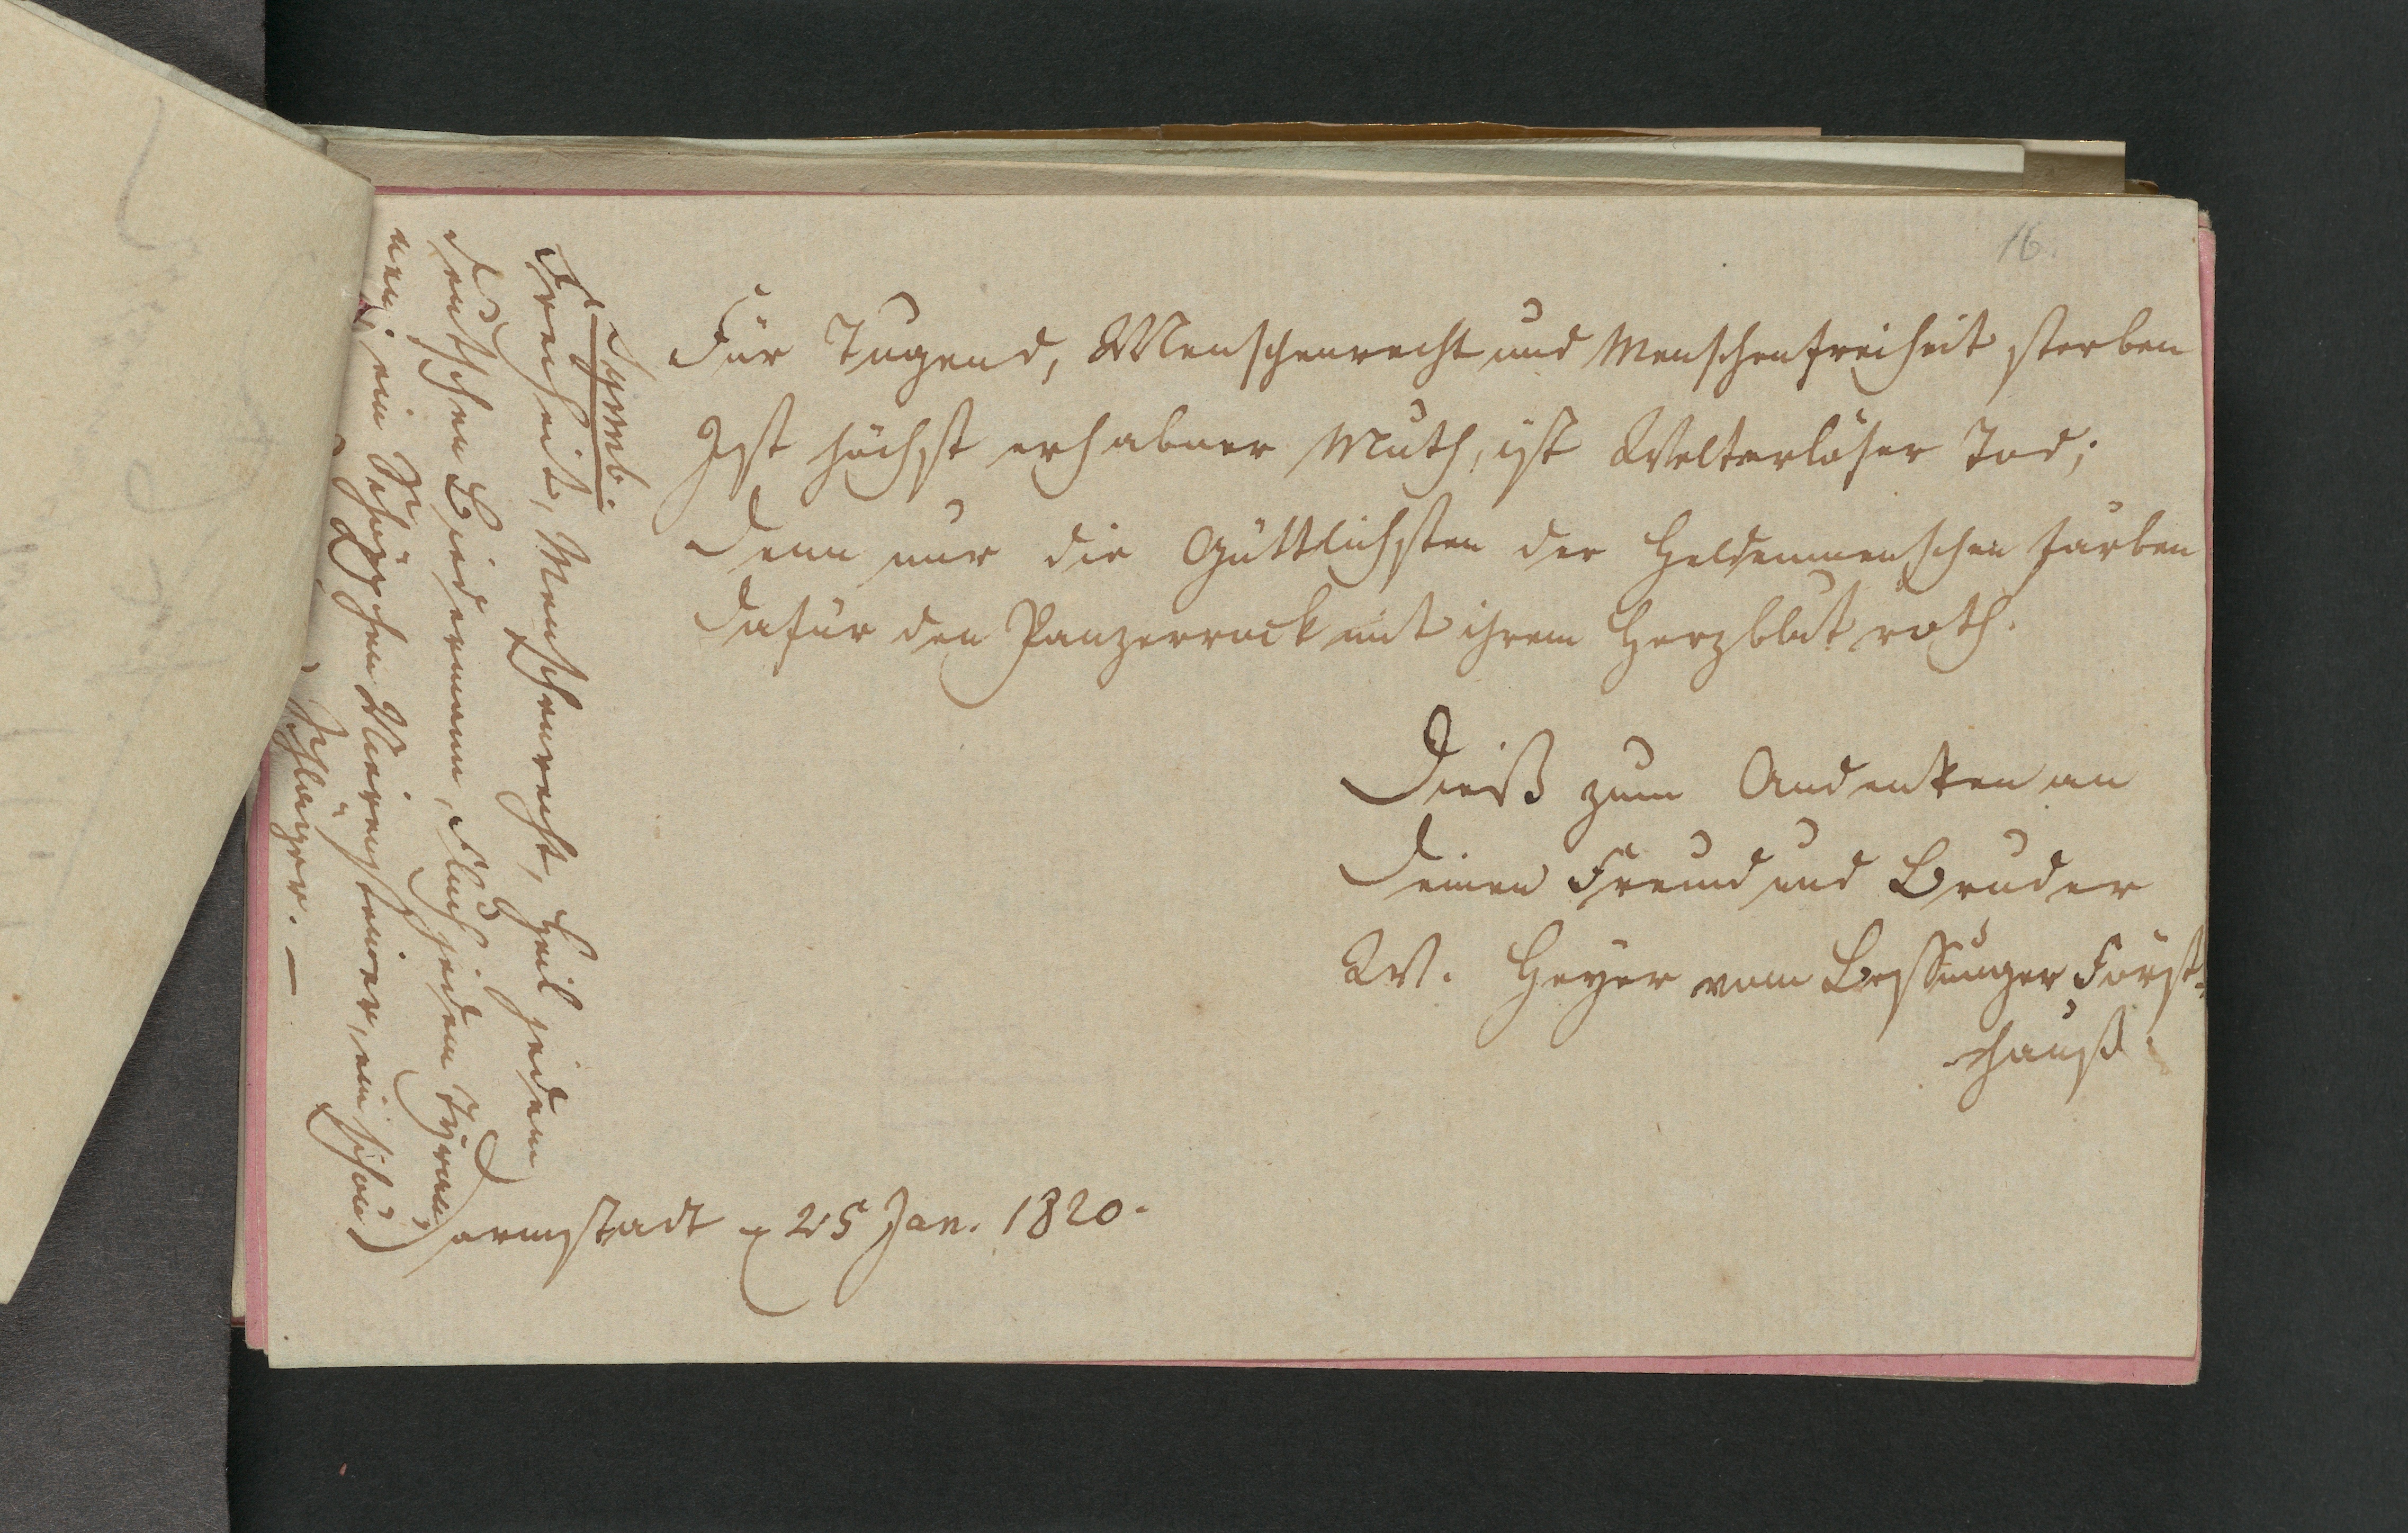 16.
Für Tugend, Menschenrecht und Menschenfreiheit sterben
Ist höchst erhabner Muth, ist Welterlöser Tod;
Denn nur die Göttlichsten der Heldenmenschen färben
Dafür den Panzerrock mit ihrem Herzblut roth.
Dieß zum Andenken an
Deinen Freund und Bruder
W. Heyer vom Bessunger Forst-
hauß.
Darmstadt 25 Jan. 1820.
Symb.
Freiheit, Menschenrecht, Heil jedem
deutschen Biedermann, Fluch jedem Tyran
nen; ein Schöppchen Niersteiner, ein schön
Schläger. —